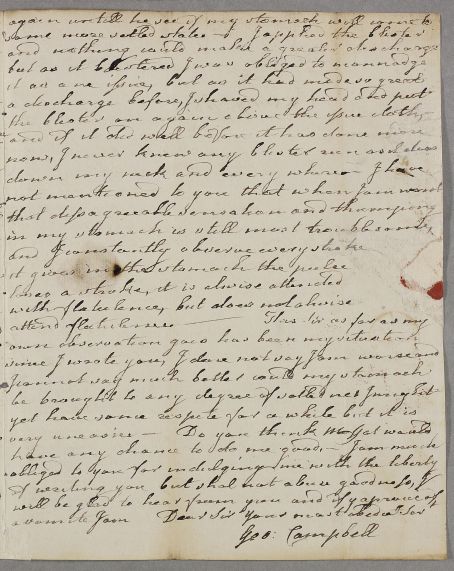 again untill he see if my stomach will come to
some more setled state - I applied the blister
and nothing could make a greater discharge
but as it blistered I was obliged to mannadge
it as a ne issue, but as it had made so great
a discharge before, I shaved my head and put
the blister on again above the issue cloth,
and if it did well before it has done more
now, I never knew any blister run as it does
down my neck and every where - I have
not mantioned to you that when I am worst
that dissagreeable sensation and thumping
in my stomach is still most troublesome,
and I constantly observe every stroke
it gives in the stomach the pulse
has a stroke, it is alwise attended
with flatulence, but does not alwise
attend flatulence This Sir as far as my
own observation goes has been my situation
since I wrote you, I dare not say I am worse and
I cannot say much better could my stomach
be brought to any degree of setlednes I might
yet have some respite for a while but it is
very uneasie Do you think Gat would
have any chance to do me good, - I am much
obliged to you for indulging me with the liberty
of writing you but shal not abuse goodness, I
will be glad to hear from you and if you aprove of
a vomite I am Dear Sir Your most obedt Ser
Geo: Campbell